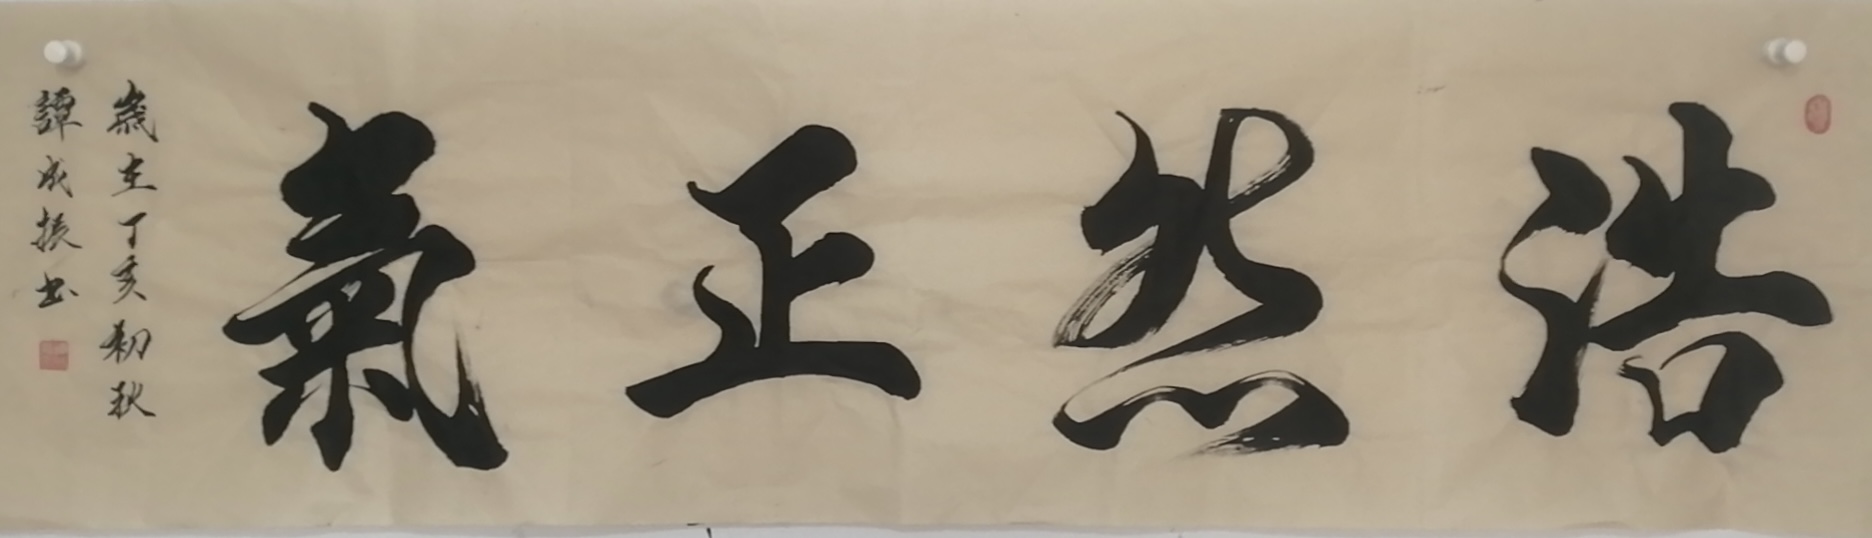 浩然正氣
歲在丁亥初秋
譚成振書